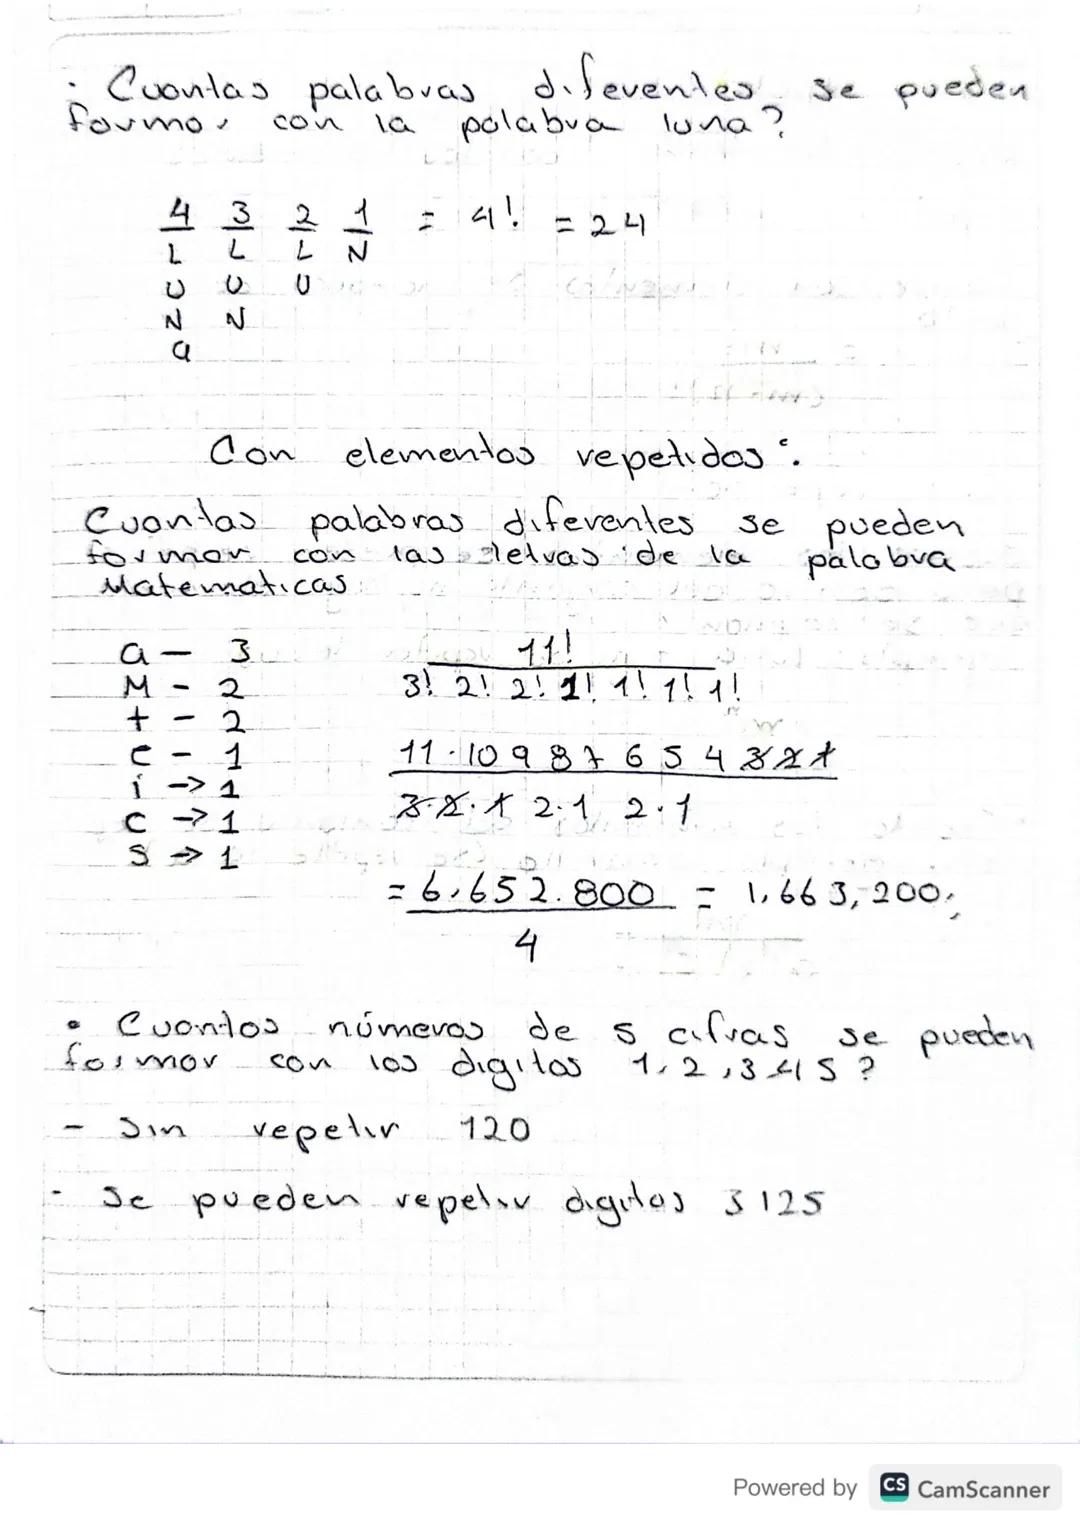 · Cuantas palabras diferentes se pueden
formar con la palabra luna?
4 3 2 1 = 4! = 24
L L L N
U U U
N N
a
Con elementos repetidos:
Cuantas palabras diferentes se pueden
formar con las letras de la palabra
Matematicas
a - 3
M - 2
t - 2
e - 1
i -> 1
c -> 1
s -> 1
11!
3! 2! 2! 1! 1! 1! 1!
11·10 9 8 7 6 5 4 3 2 1
3·2·1 2·1 2·1
= 6,652.800 = 1,663,200
4
• Cuantos números de 5 cifras se pueden
formar con los digitos 1,2,3 4 5?
- Sin repetir 120
- Se pueden repetir digitos 3125
Powered by CS CamScanner